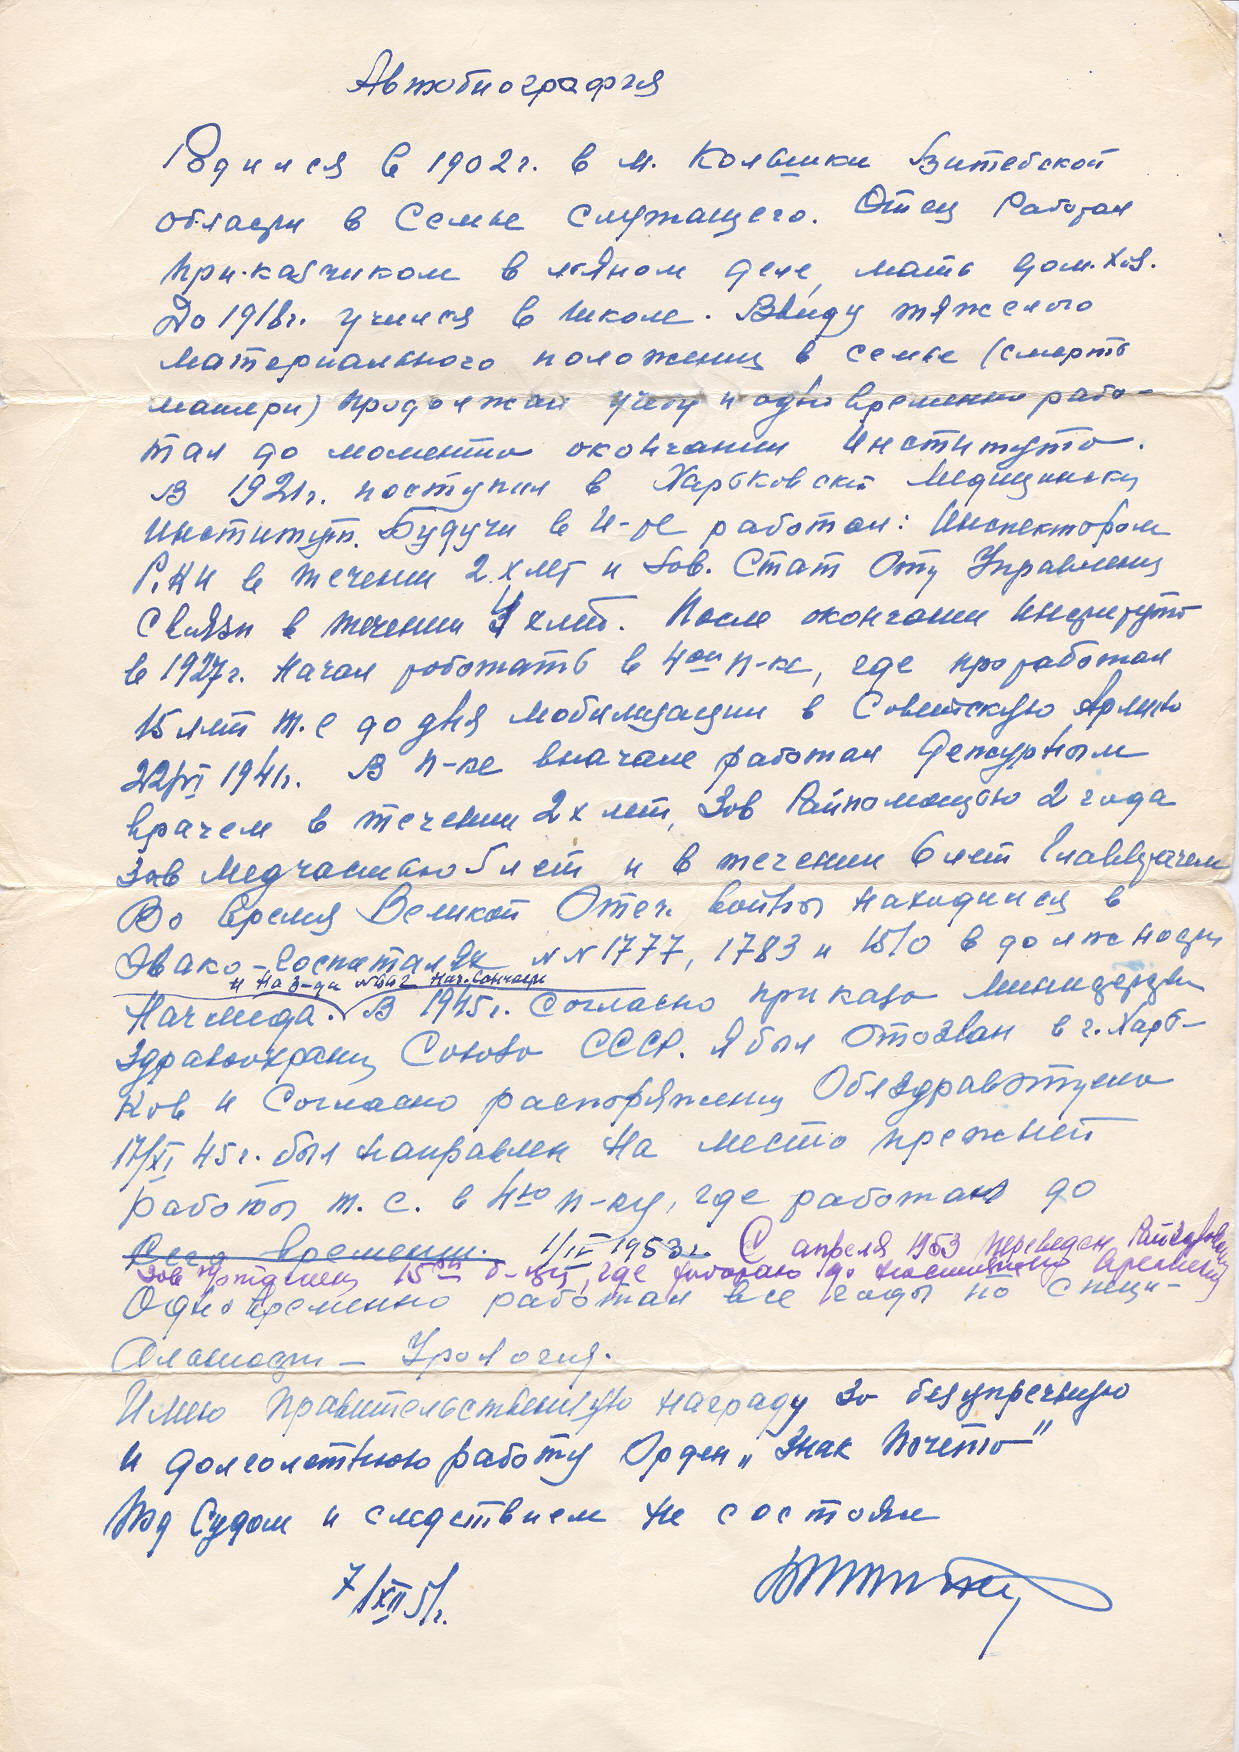 Автобиография
Родился в 1902г. в м. Колышки Витебской
области в семье служащего. Отец работал
приказчиком в льяном деле, мать дом.хоз.
До 1918г. учился в школе. Ввиду тяжелого
материального положения в семье (смерть
матери) продолжал учебу и одновременно рабо-
тал до момента окончании Института.
В 1921г. поступил в Харьковский Медицинский
Институт. Будучи в И-те работал: Инспектором
Р.К.И в течении 2х лет и Зав. Стат Отд Управления
Связи в течении 4х лет. После окончании Института
в 1927г. начал работать в 4ой п-ке, где проработал
15 лет т.е до дня мобилизации в Советскую Армию
22/VI 1941г. В п-ке вначале работал дежурным
врачем в течении 2х лет, Зав Райпомощью 2 года
Зав Медчастью 5 лет и в течении 6 лет Главврачем
Во время Великой Отеч. войны находился в
Эвако-Госпиталях NN 1777, 1783 и 1510 в должности
и на
Начмеда. В 1945г. Согласно приказа Министерства
Здравоохранения Союза СССР. Я был Отозван в г. Харь-
ков и Согласно распоряжения Облздравотдела
17/XI 45г. был направлен на место прежней
работы т.е. в 4ую п-ку, где работал до
сего времени. 1/IV 1953г. С апреля 1953 переведен Райздравом
Зав 15ой б-цы, где работаю до настоящего времени
Одновременно работал все годы по специ-
альности - Урология.
Имею Правительственную награду за безупречную
и долголетнюю работу Орден „Знак Почета"
Под Судом и следствием не состоял
7/XII 51г.